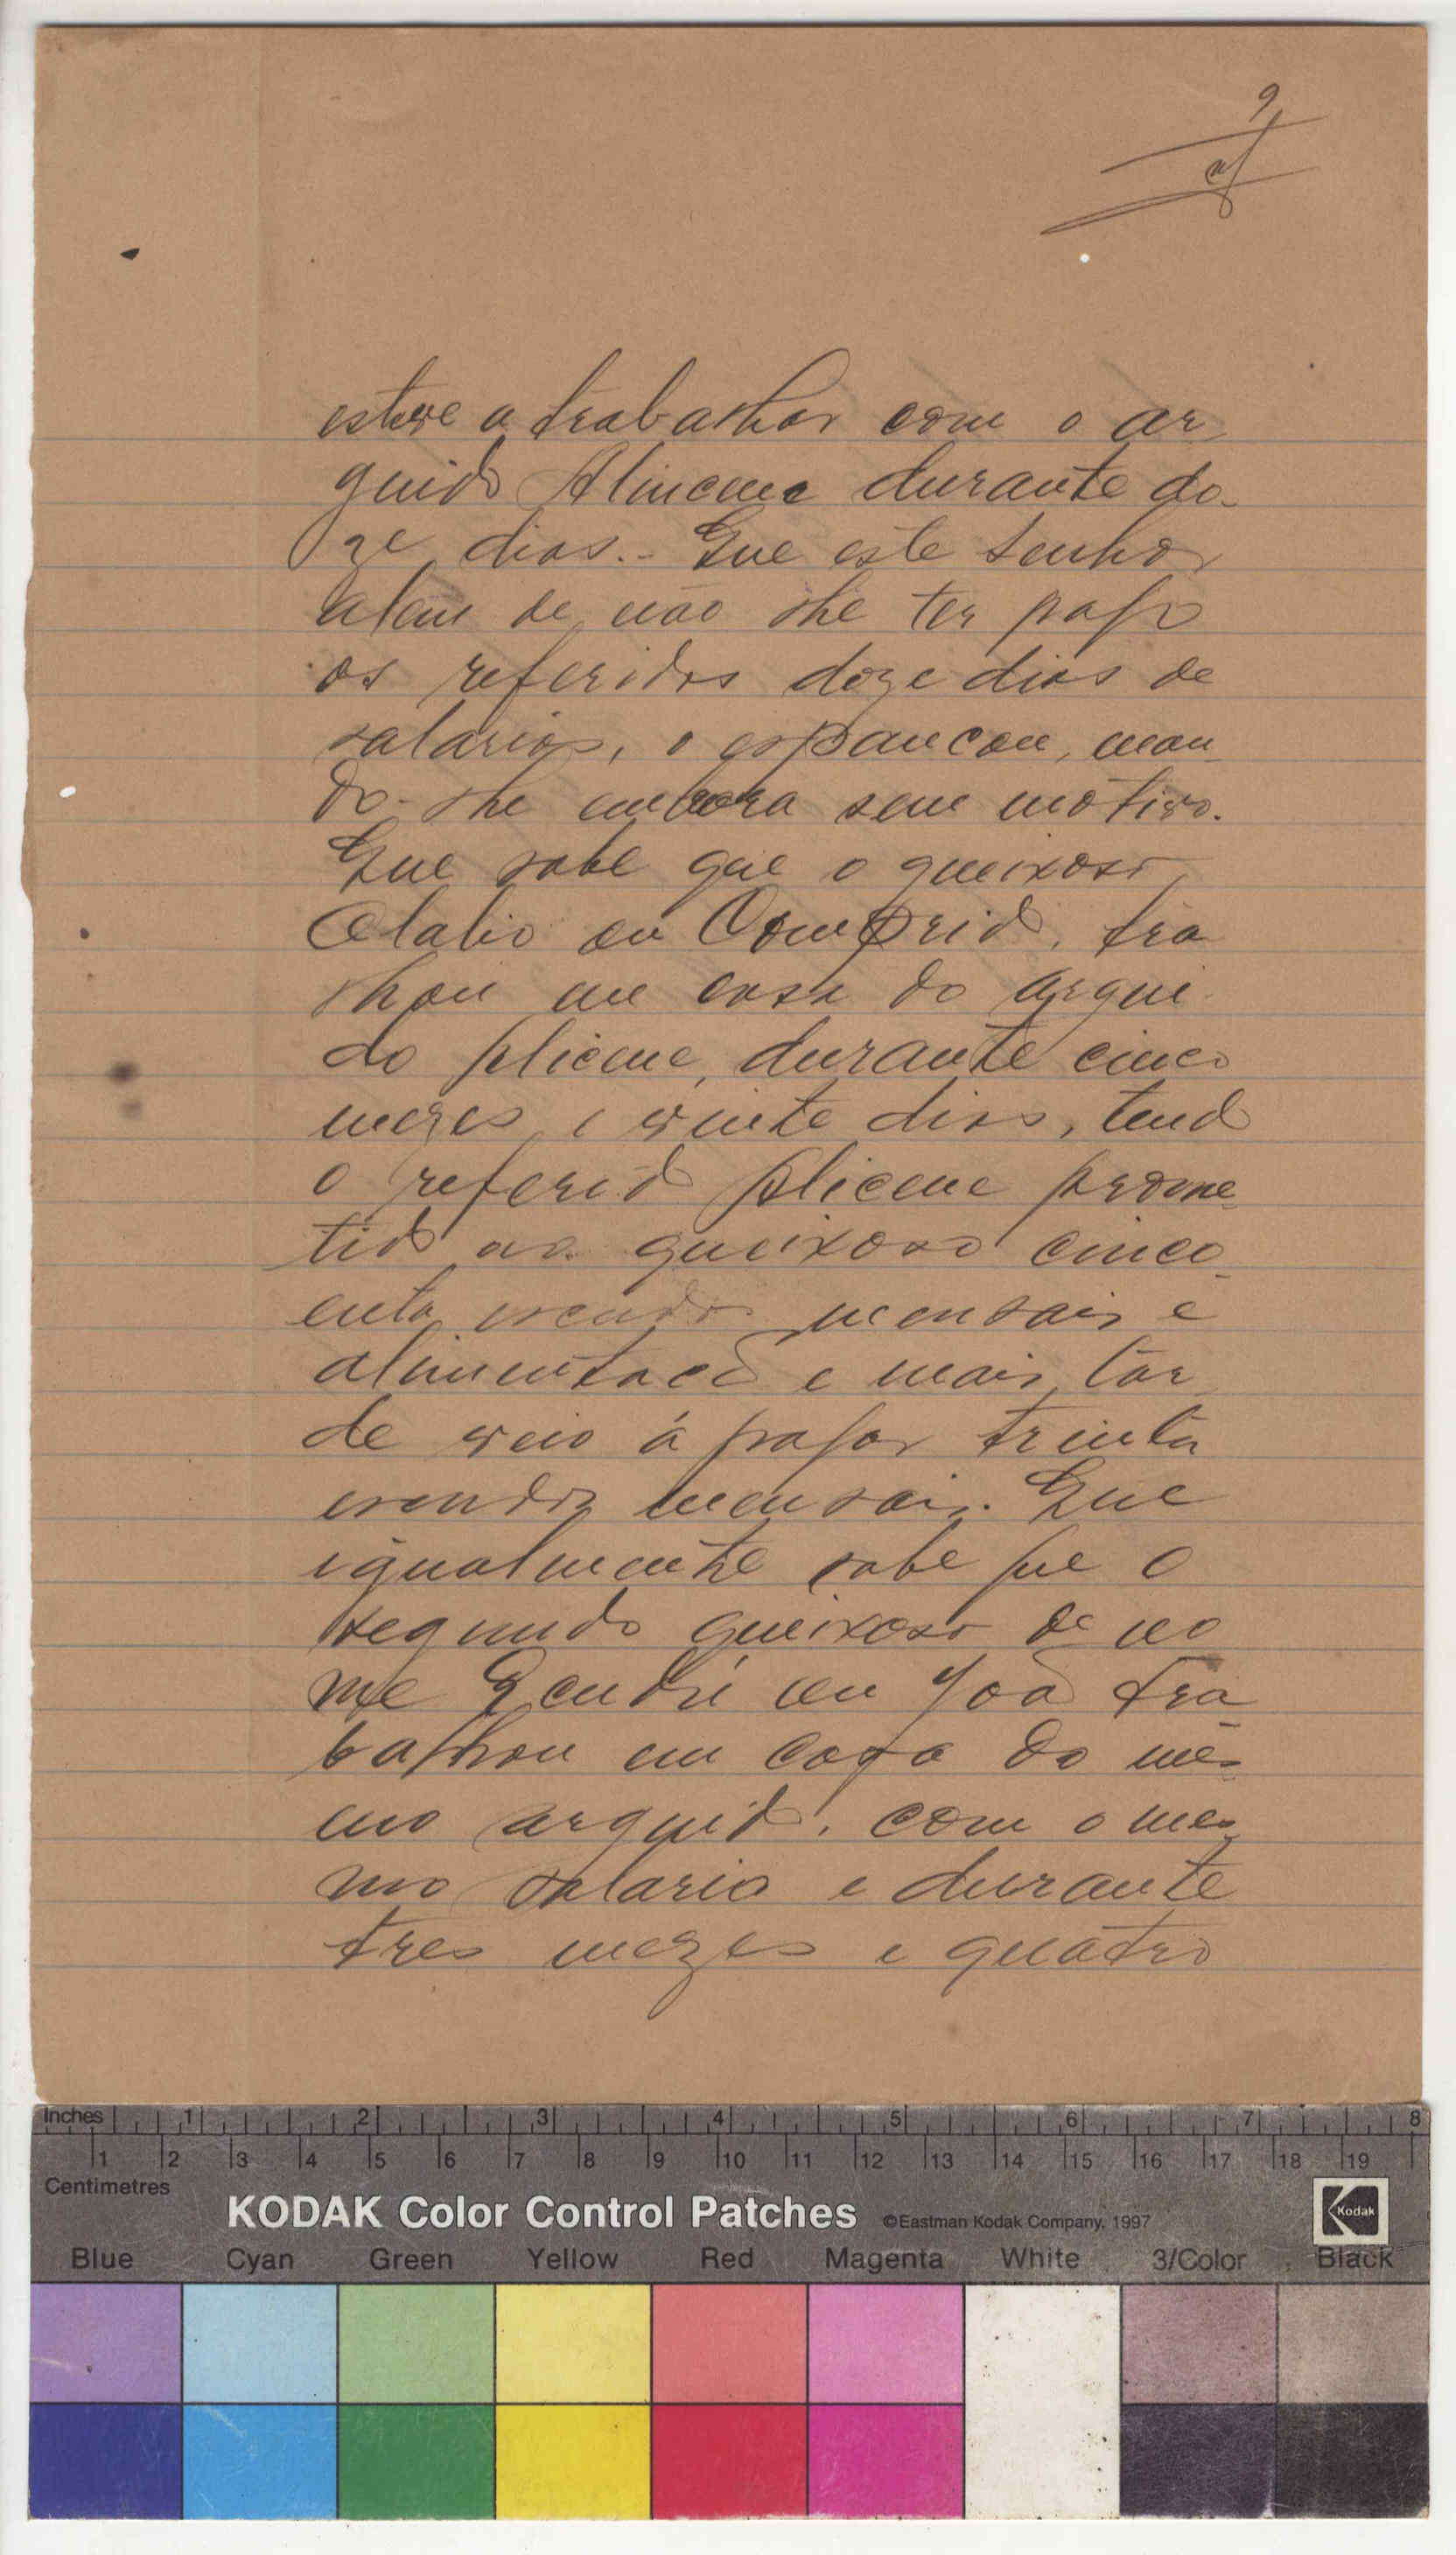 9
esteve a trabalhar com o ar
guido durante do-
ze dias.- Que este senhor
alem de não lhe ter pago
os referidos doze dias de
salarios, o espancou, man
do-lhe embora sem motivo.
Que sabe que o queixoso
ou Comprido, tra
lhou em casa do argui
do durante cinco
mezes e vinte dias, tendo
o referido prome
tido ao queixoso cinco-
enta escudos mensais e
alimentação e mais tar
de veio á pagar trinta
escudos mensais. Que
igualmente sabe que o
segundo queixoso de no
me ou João tra
balhou em casa do mes
mo arguido, com o mes
mo salario e durante
tres mezes e quatro
Inches 1 2 3 4 5 6 7 8
1 2 3 4 5 6 7 8 9 10 11 12 13 14 15 16 17 18 19
Centimetres
KODAK Color Control Patches ©Eastman Kodak Company, 1997 Kodak
Blue Cyan Green Yellow Red Magenta White 3/Color Black